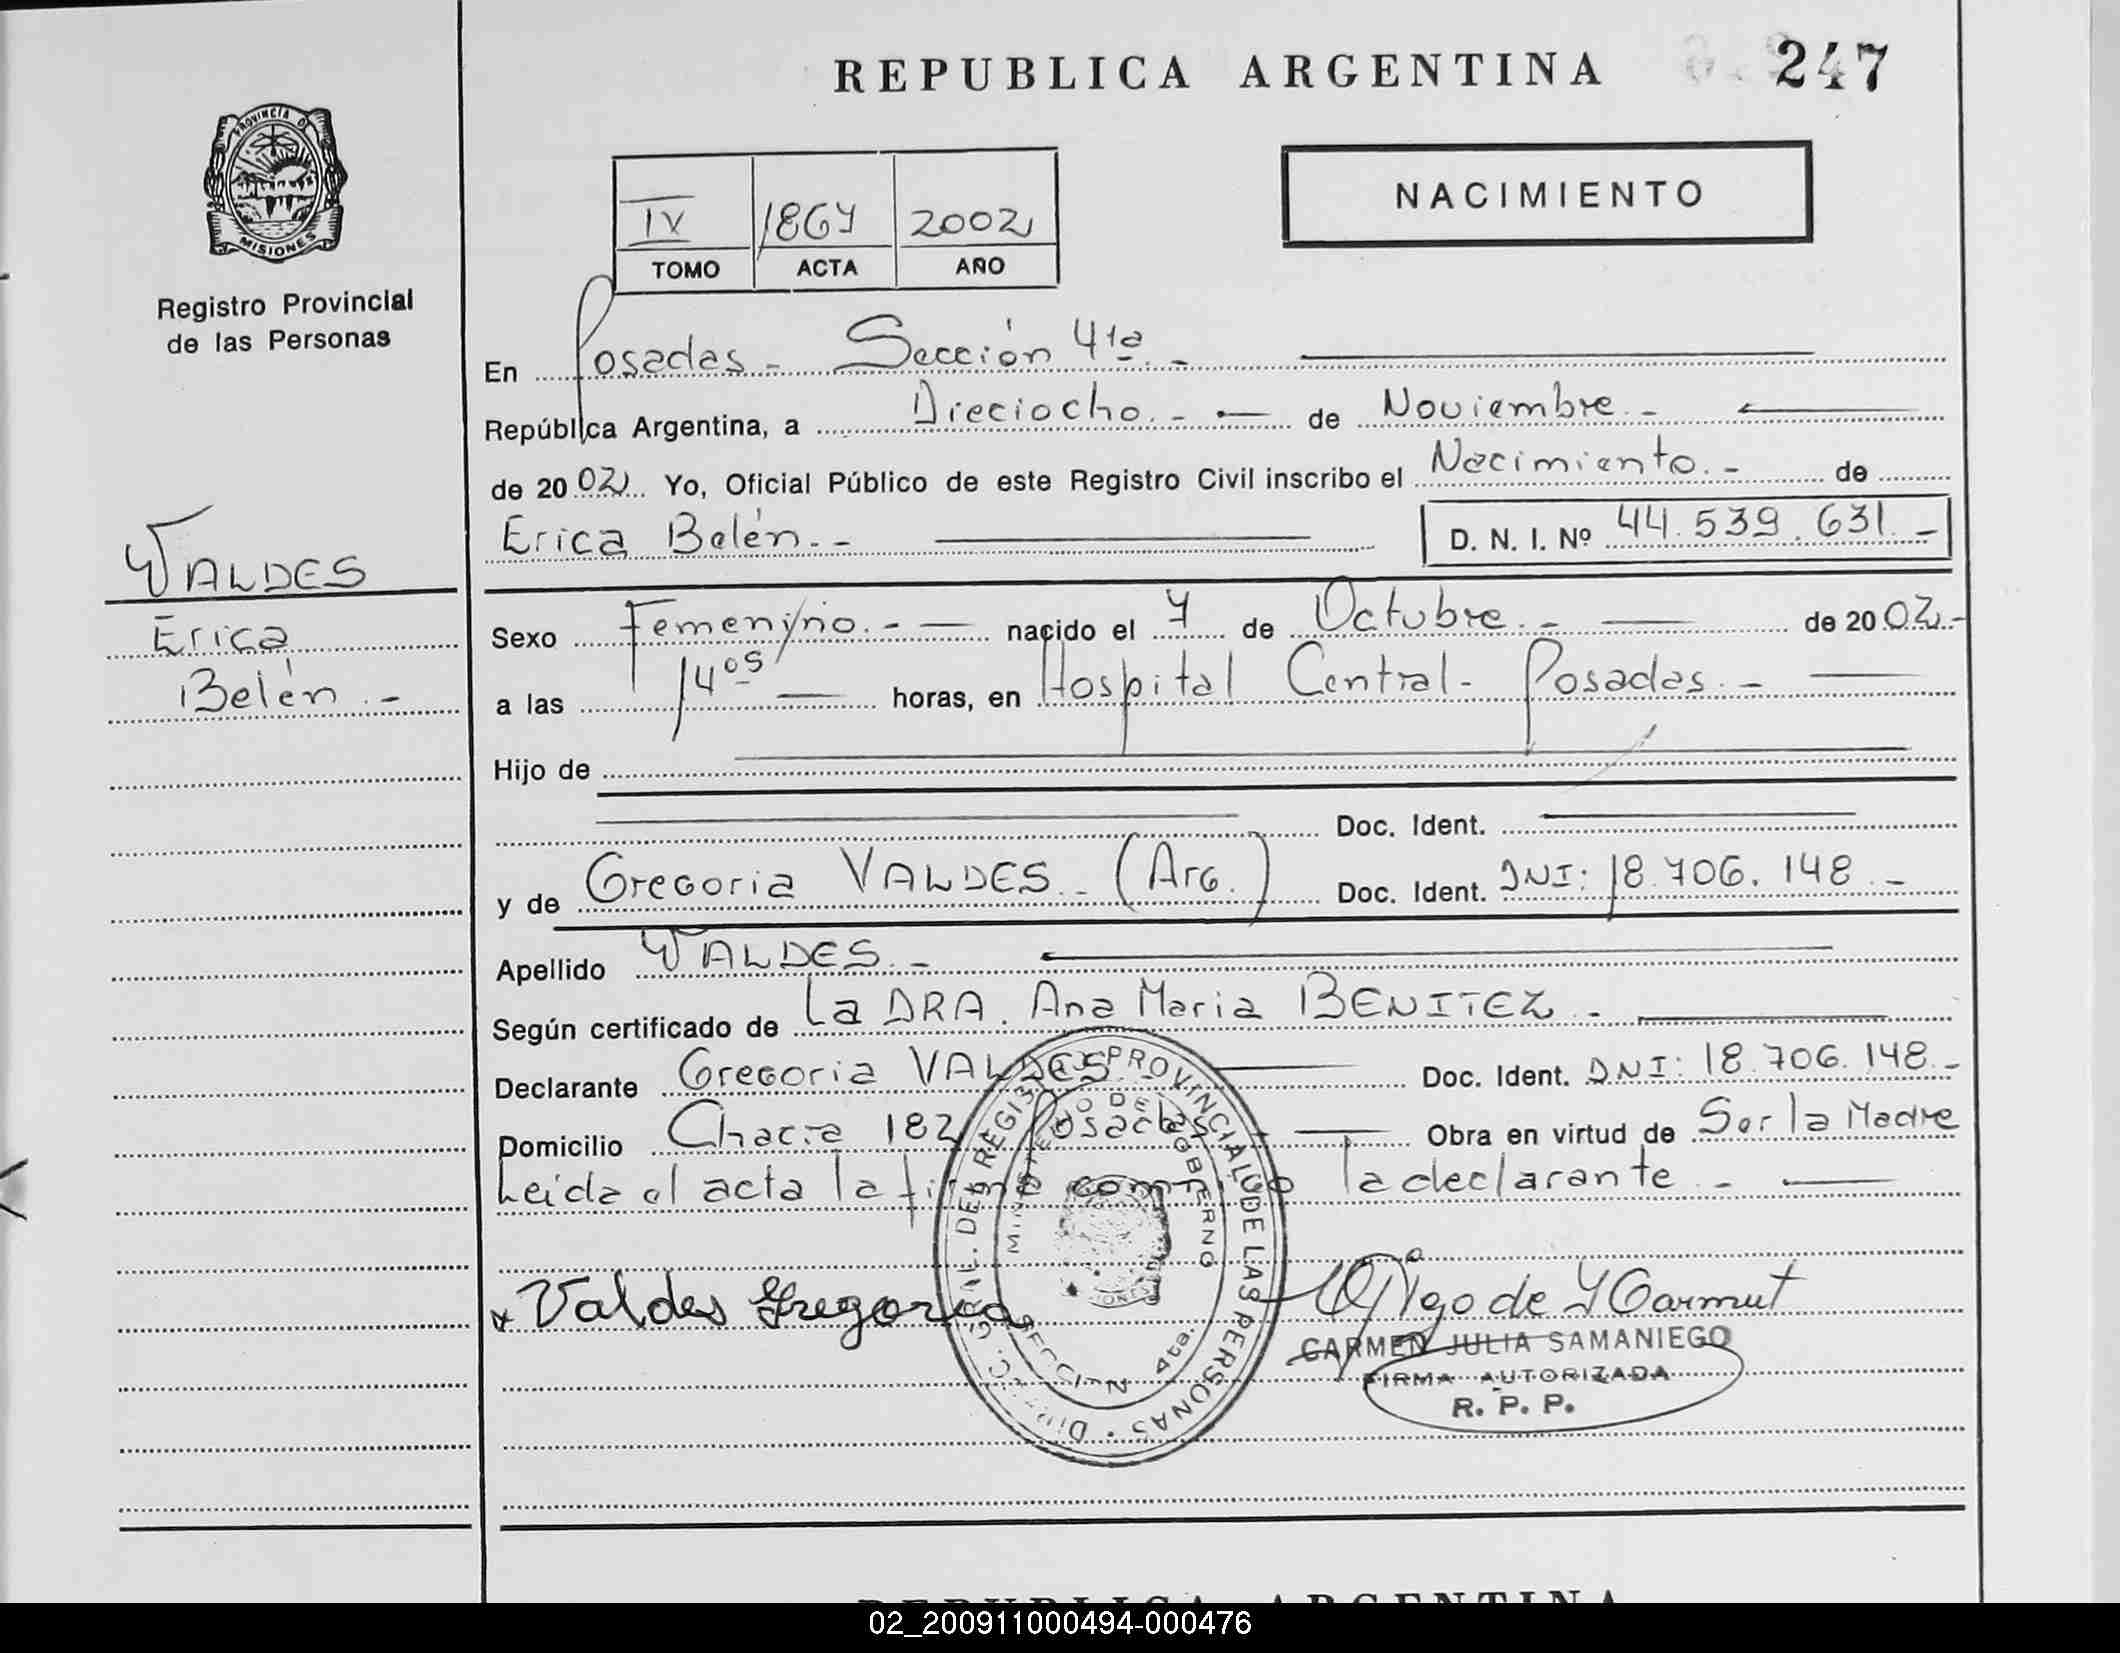 REPUBLICA ARGENTINA
247
PROVINCIA DE
MISIONES
Registro Provincial
de las Personas
NACIMIENTO
IV 1867 2002
TOMO ACTA AÑO
En Posadas - Sección 4ta. -
República Argentina, a Dieciocho. - de Noviembre. -
de 20 02 Yo, Oficial Público de este Registro Civil inscribo el Nacimiento. - de
Erica Belén. -
D. N. I. Nº 44.539.631. -
VALDES
Erica
Belén. -
Sexo Femenino. - nacido el 7 de Octubre. - de 20 02. -
a las 14 05 horas, en Hospital Central - Posadas. -
Hijo de
Doc. Ident.
y de Gregoria VALDES. - (Arg.) Doc. Ident. DNI: 18.706.148. -
Apellido VALDES. -
Según certificado de la DRA. Ana Maria BENITEZ. -
Declarante Gregoria VALDES. - Doc. Ident. DNI: 18.706.148. -
Domicilio Chacra 182 Posadas - Obra en virtud de Ser la Madre
Leida el acta la firma conmigo la declarante. -
Valdes Gregoria
CARMEN JULIA SAMANIEGO
FIRMA AUTORIZADA
R. P. P.
GRAL. DEL REGISTRO PROVINCIAL DE LAS PERSONAS
MINISTERIO DE GOBIERNO
SECCION 4ta.
REPUBLICA ARGENTINA
02_200911000494-000476